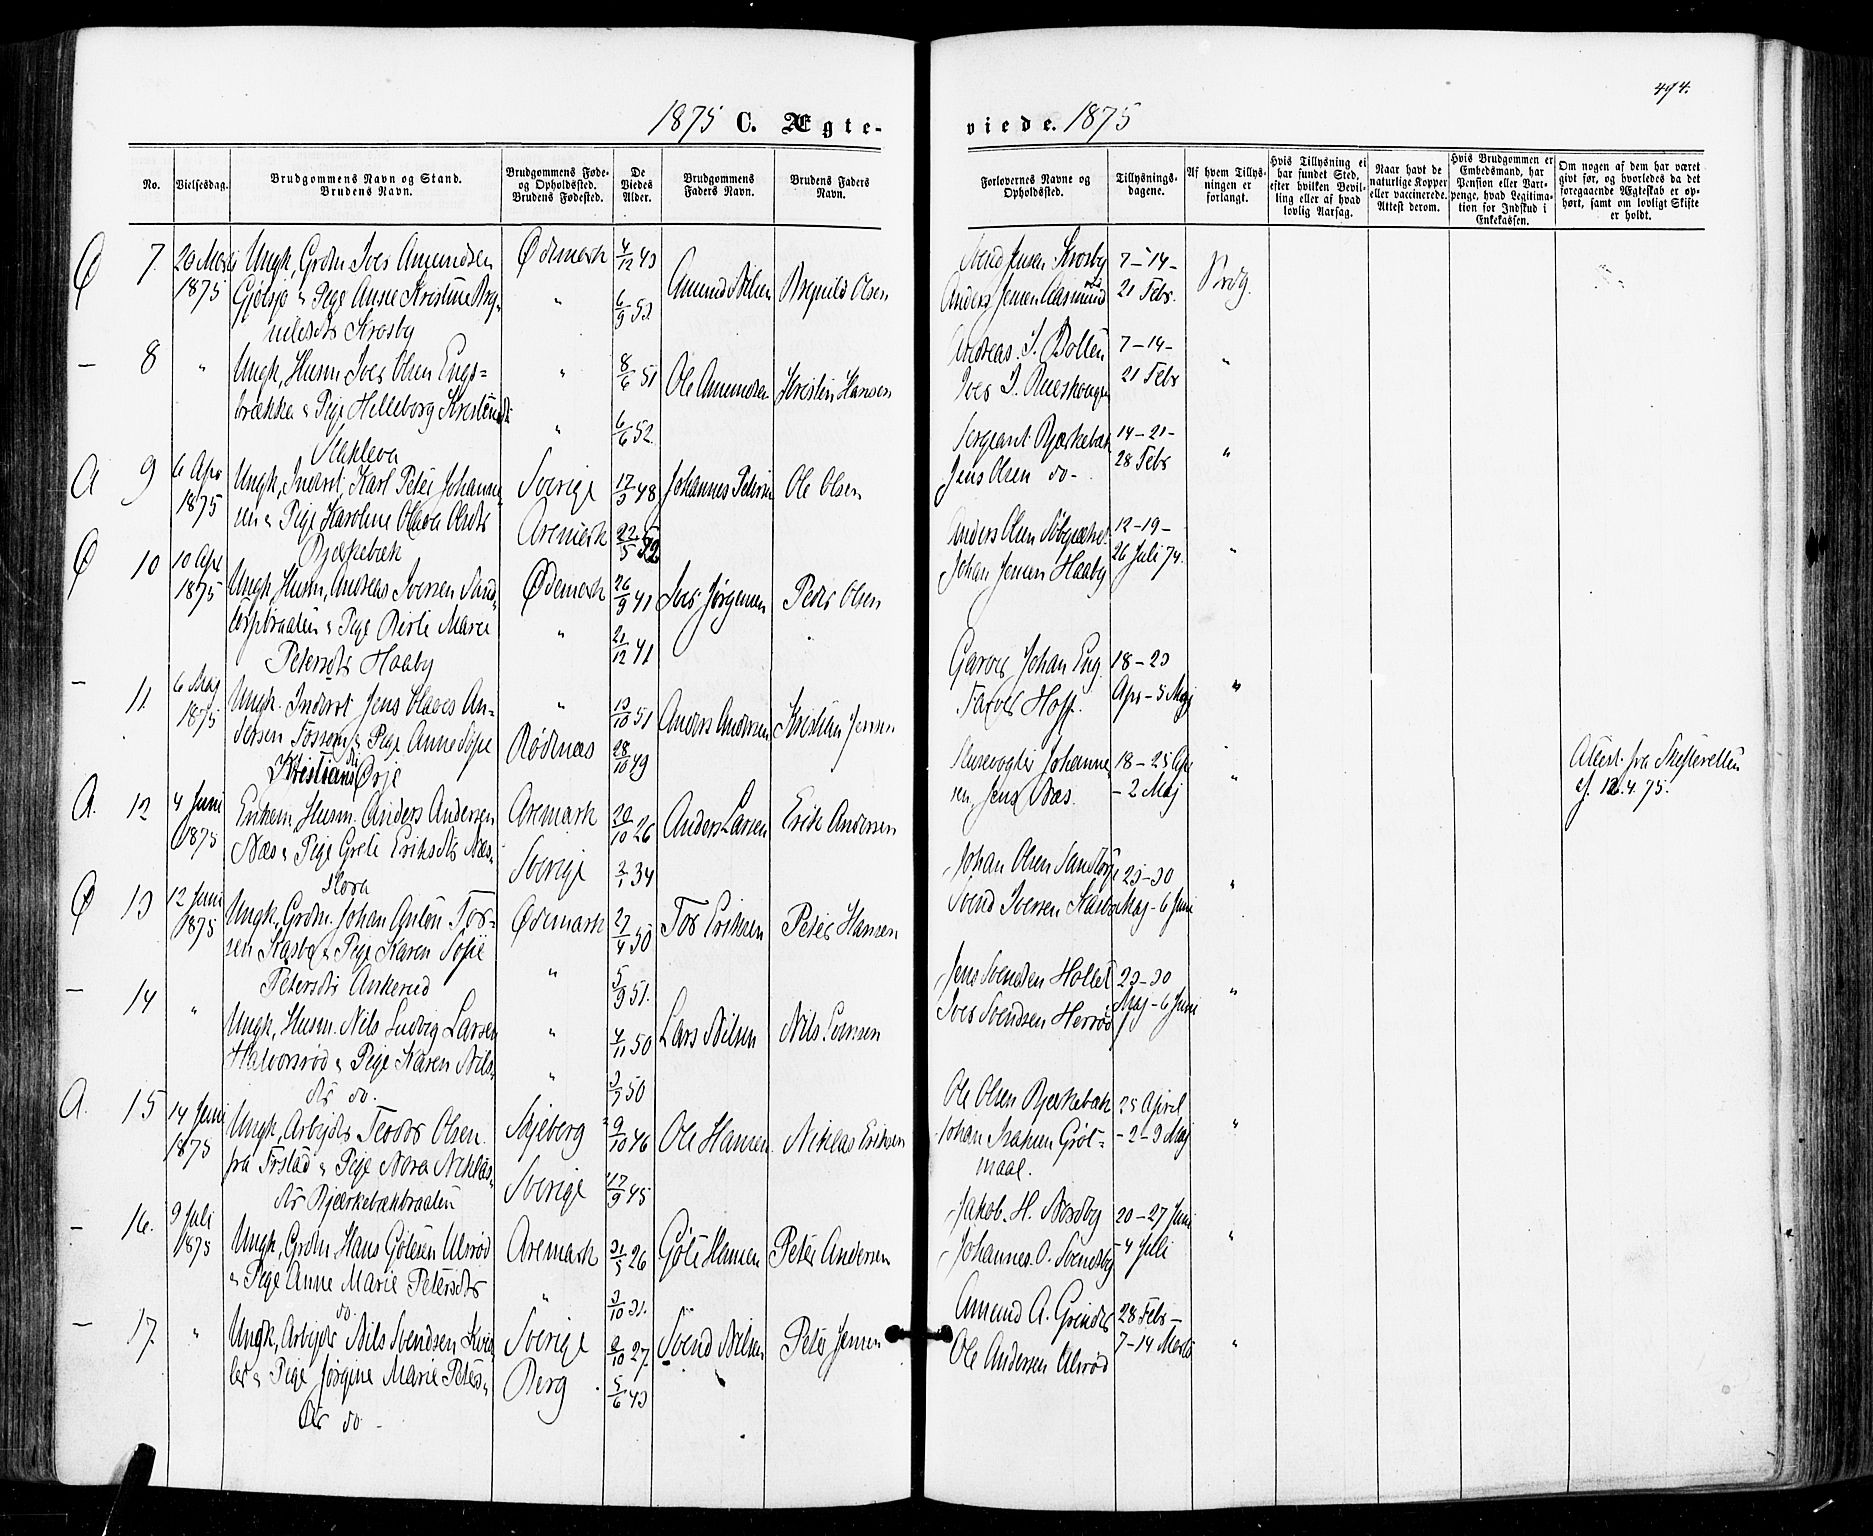 494.
1875 C. Ægte-
viede. 1875
No.
Vielsesdag.
Brudgommens Navn og Stand.
Brudens Navn.
Brudgommens Føde-
og Opholdssted.
Brudens Fødested.
De
Viedes
Alder.
Brudgommens
Faders Navn.
Brudens Faders
Navn.
Forlovernes Navne og
Opholdssted.
Tillysnings-
dagene.
Af hvem Tillys-
ningen er
forlangt.
Hvis Tillysning ei
har fundet Sted,
efter hvilken Bevil-
ling eller af hvad
lovlig Aarsag.
Naar havt de
naturlige Kopper
eller vaccinerede.
Attest derom.
Hvis Brudgommen er
Embedsmand, har
Pension eller Vart-
penge, hvad Legitima-
tion for Indskud i
Enkekassen.
Om nogen af dem har været
givt før, og hvorledes da det
foregaaende Ægteskab er op-
hørt, samt om lovligt Skifte
er holdt.
Ø 7. 20 Marts Ungk, Grdm Iver Amundsen Ødemark 4/12 43
1875 Gjølsjø & Pige Anne Kristine Brg- " 6/9 53
nildsdtr Krosby
Amund Nilsen Brynild Olsen
Svend Jensen Krosby 7-14-
Anders Jensen Aasmund 21 Febr. Brdg.
— 8 " Ungk, Husm Iver Olsen Engs= " 8/6 51
brækka & Pige Helleborg Kristensdtr " 6/6 52
Ole Amundsen Kristen Hansen
Andreas J. Bolten 7-14-
Iver J. 21 Febr "
A 9 6 Apr Ungk, Inderst Karl Peter Johanne- Sverige 17/3 48
1875 sen & Pige Karoline Olava Olsdtr Aremark 22/5 52
Bjærkebæk
Johannes Petersen Ole Olsen
Sergeant Bjærkebæk 14-21-
Jens Olsen do- 28 Febr "
Ø 10 10 Apr Ungk, Husm, Andreas Iversen Sand- Ødemark 26/9 41
1875 & Pige Berte Marie " 21/12 41
Petersdtr Haaby
Iver Jørgensen Peder Olsen
Anders Olsen 12-19-
Johan Jensen Haaby 26 Juli 74. "
— 11. 6 Maj Ungk. Inderst Jens Olaves An- " 13/10 51
1875 dersen Fossum & Pige Anne Sofie Rødenæs 28/10 49
Kristiansdtr Ørje
Anders Andersen Kristian Jensen
Garver Johan Eng 18-25
Farver Hoff. Apr-5 Maj "
A. 12 4 Juni Enkem Husm. Anders Andersen Aremark 30/10 26
1875 Næs & Pige Grete Eriksdtr Næs- Sverige 2/1 34
Anders Larsen Erik Andersen
Johanne- 18-25 Apr
sen, Jens Næs. -2 Maj "
Attest fra Skifteretten
af 12.4.75.
Ø 13 12 Juni Ungk, Grdm. Johan Anton Tor- Ødemark 27/4 50
1875 sen Kasbo & Pige Karen Sofie " 5/9 51.
Petersdtr Ankerud
Tor Eriksen Peter Hansen
Johan Olsen Sandtorp 23-30
Svend Iversen Kasbo Maj-6 Juni "
— 14 " Ungk, Husm. Nils Ludvig Larsen " 4/11 50
Halvorsrød & Pige Karen Nils- " 3/5 50
dtr do.
Lars Nilsen Nils Evensen
Jens Svendsen Hollet 23-30
Iver Svendsen Herrød Maj-6 Juni "
A. 15 14 Juni Ungk, Arbejder Teodor Olsen Skjeberg 9/10 46
1875 fra & Pige Nora Niklas- Sverige 17/9 45
dtr Bjærkebækbraaten
Ole Hansen Niklas Eriksen
Ole Olsen Bjærkebæk 25 April
Johan Isaksen Gröt- -2-9 Maj "
maal.
— 16. 9 Juli Ungk, Grdm Hans Götesen Ulvrød Aremark 31/5 26
1875 & Pige Anne Marie Petersdtr " 3/10 31.
do.
Göte Hansen Peter Andersen
Jakob. H. Nordby 20-27 Juni
Johannes. O. Svendsby -4 Juli "
— 17. " Ungk, Arbejder Nils Svendsen Kvis- Sverige 9/10 27.
ler & Pige Jørgine Marie Peters- Berg 5/6 43
dtr do-
Svend Nilsen Peter Jensen
Amund A. Grinder 28 Febr-
Ole Andersen Ulvrød 7-14 Marts "